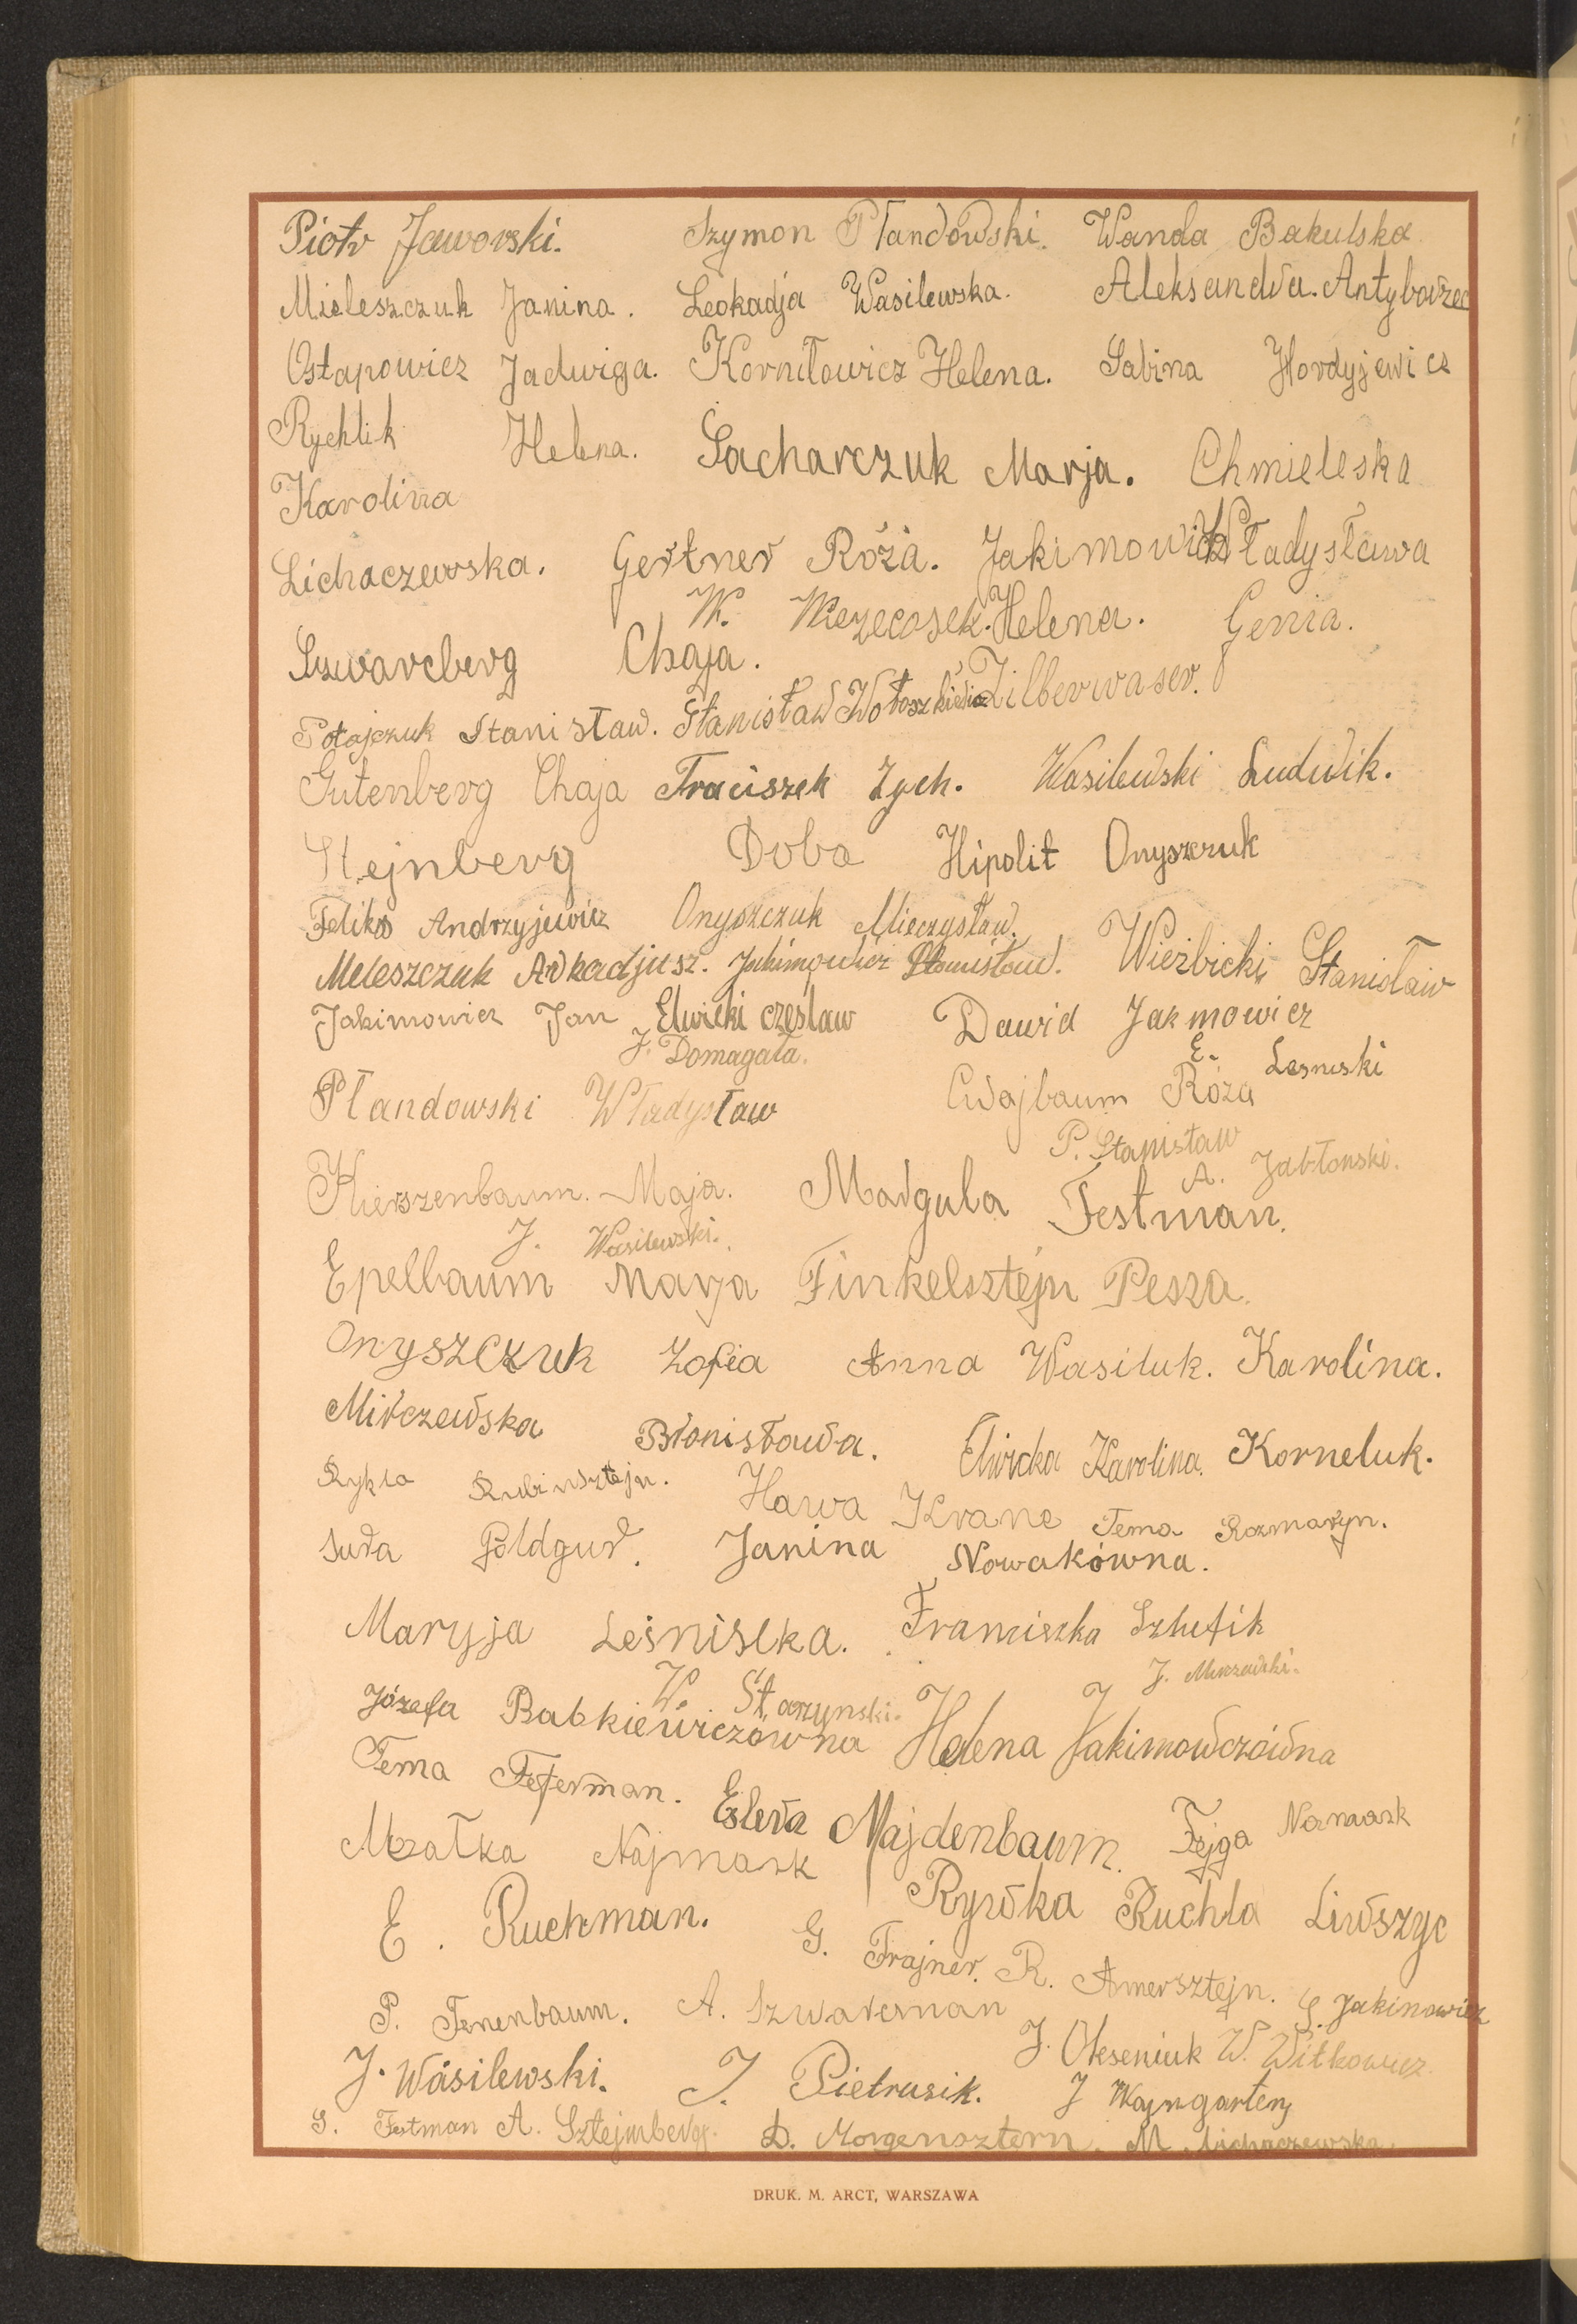 Piotr Jaworski. Szymon Płandowski. Wanda Bakulska
Mieleszczuk Janina. Leokadja Wasilewska. Aleksandra. Antyborzec
Ostapowicz Jadwiga. Korniłowicz Helena. Sabina Hordyjewicz
Rychlik Helena. Sacharczuk Marja. Chmieleska
Karolina
Lichaczewska. Gertner Róża. Jakimowicz Władysława
W. Helena. Genia.
Szwarcberg Chaja.
Potajczuk Stanisław. Stanisław Wołoszkiewicz Zilberwaser.
Gutenberg Chaja Fraciszek Zych. Wasilewski Ludwik.
Stejnberg Doba Hipolit Onyszczuk
Feliks Andrzyjewicz Onyszczuk Mieczysław.
Meleszczuk Arkadjusz. Jakimowicz Stanisław. Wierzbicki Stanisław
Jakimowicz Jan Elwicki czesław Dawid Jakmowicz
J. Domagała. E. Lesniski
Płandowski Władysław Cwajbaum Róża
P. Stanisław
A. Jabłonski.
Hierszenbaum. Maja. Margula Festman.
J. Wasilewski.
Epelbaum Marja Finkelsztejn Pesza.
Onyszczuk Zofia Anna Wasiluk. Karolina.
Mirczewska Bronisława. Elwicka Karolina. Korneluk.
Rykla Rubinsztejn. Hawa Krane Tema Rozmaryn.
Sura Goldgur. Janina Nowakówna.
Maryja Leśniska. Franciszka Szlufik
J. Mirczewski.
W. Starzynski.
Józefa Babkiewiczówna Helena Jakimowczówna
Tema Feferman. Estera Majdenbaum. Fejga
Małka Najmark
E. Ruchman. Rywka Ruchla Liwszyc
G. Frajner. R. Amersztejn. S. Jakimowicz
P. Tenenbaum. A. Szwarcman
J. Okseniuk W. Witkowicz.
J. Wasilewski. J. Pietrusik. J Wajngarten
S. Festman A. Sztejnberg. D. Morgensztern. M Lichaczewska.
DRUK. M. ARCT, WARSZAWA